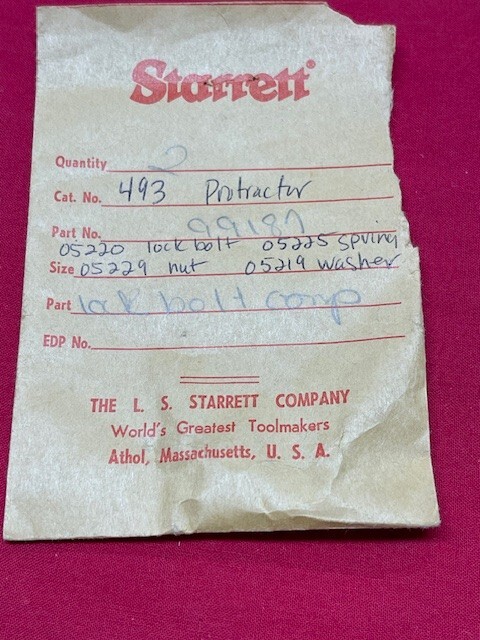 Starrett®
Quantity 2
Cat. No. 493 Protractor
Part No. 99187
05220 lock bolt 05225 spring
Size 05229 nut 05219 washer
Part lock bolt comp
EDP No.
THE L. S. STARRETT COMPANY
World's Greatest Toolmakers
Athol, Massachusetts, U. S. A.